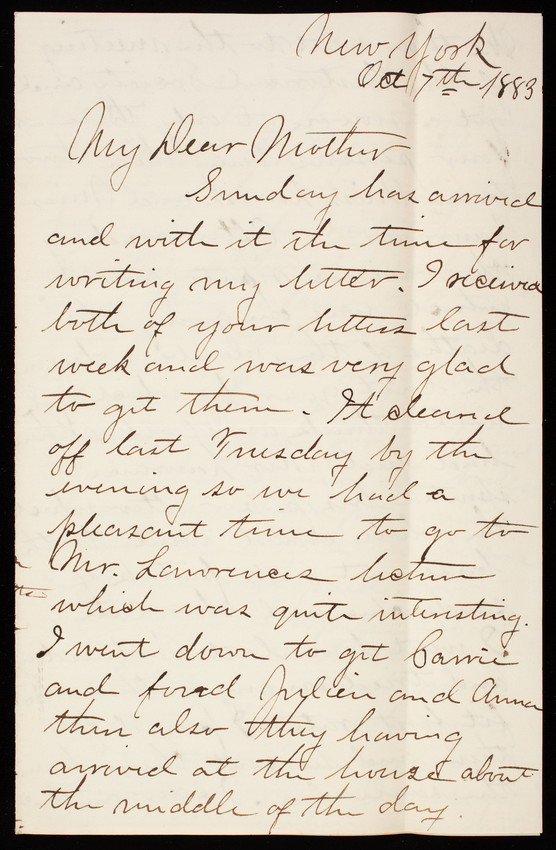 New York
Oct 7th 1883
My Dear Mother
Sunday has arrived
and with it the time for
writing my letter. I received
both of your letters last
week and was very glad
to get them. It cleared
off last Tuesday by the
evening so we had a
pleasant time to go to
Mr. Lawrences lecture
which was quite interesting.
I went down to get Carrie
and found Julien and Anna
then also they having
arrived at the house about
the middle of the day.